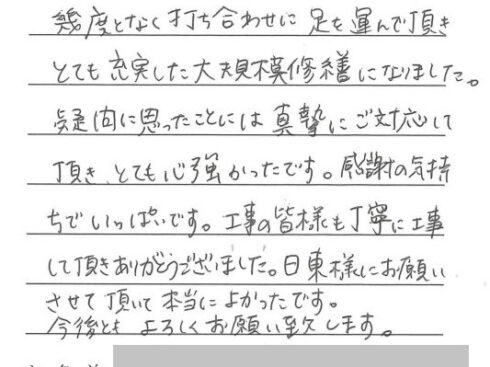 幾度となく打ち合わせに足を運んで頂き
とても充実した大規模修繕になりました。
疑問に思ったことには真摯にご対応して
頂き、とても心強かったです。感謝の気持
ちでいっぱいです。工事の皆様も丁寧に工事
して頂きありがとうございました。日東様にお願い
させて頂いて本当によかったです。
今後とも よろしくお願い致します。